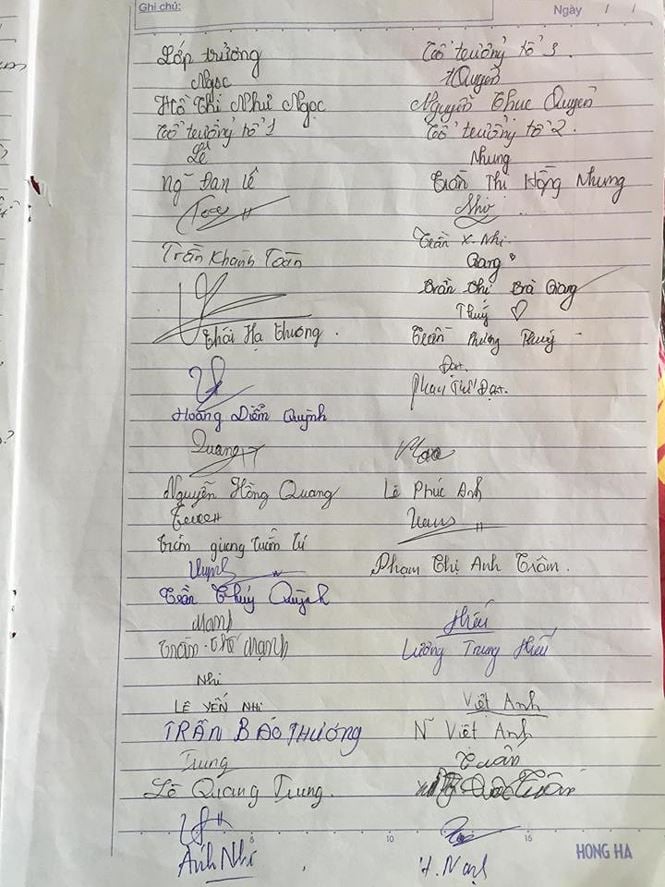 Ghi chú:
Ngày / /
Lớp trưởng
Ngọc
Hồ Thị Như Ngọc
Tổ trưởng tổ 1
Lê
Ng~ Đan Lê
Trần Khánh Toàn
Thái Hạ Thương.
Hoàng Diễm Quỳnh
Quang
Nguyễn Hồng Quang
Trần giang Tuấn Tú
Quỳnh
Trần Thuý Quỳnh
Mạnh
Trần Thế Mạnh
Nhi
LÊ YẾN Nhi
TRẦN BẢO THƯƠNG
Trung
Lê Quang Trung.
Ánh Nhi
Tổ trưởng tổ 3
Quyên
Nguyễn Thục Quyên
Tổ trưởng tổ 2.
Nhung
Trần Thị Hồng Nhung
Nhi
Trần X. Nhi.
Giang
Trần Thị Trà Giang
Thuý ♡
Trần Phương Thuý
Đạt.
Phan Đạt.
Lê Phúc Anh
Phạm Thị Anh Trâm.
Hiếu
Lương Trung Hiếu
Việt Anh
N~ Việt Anh
Tuấn
Quốc Tuấn
H. Nam
5 10 15
HONG HA